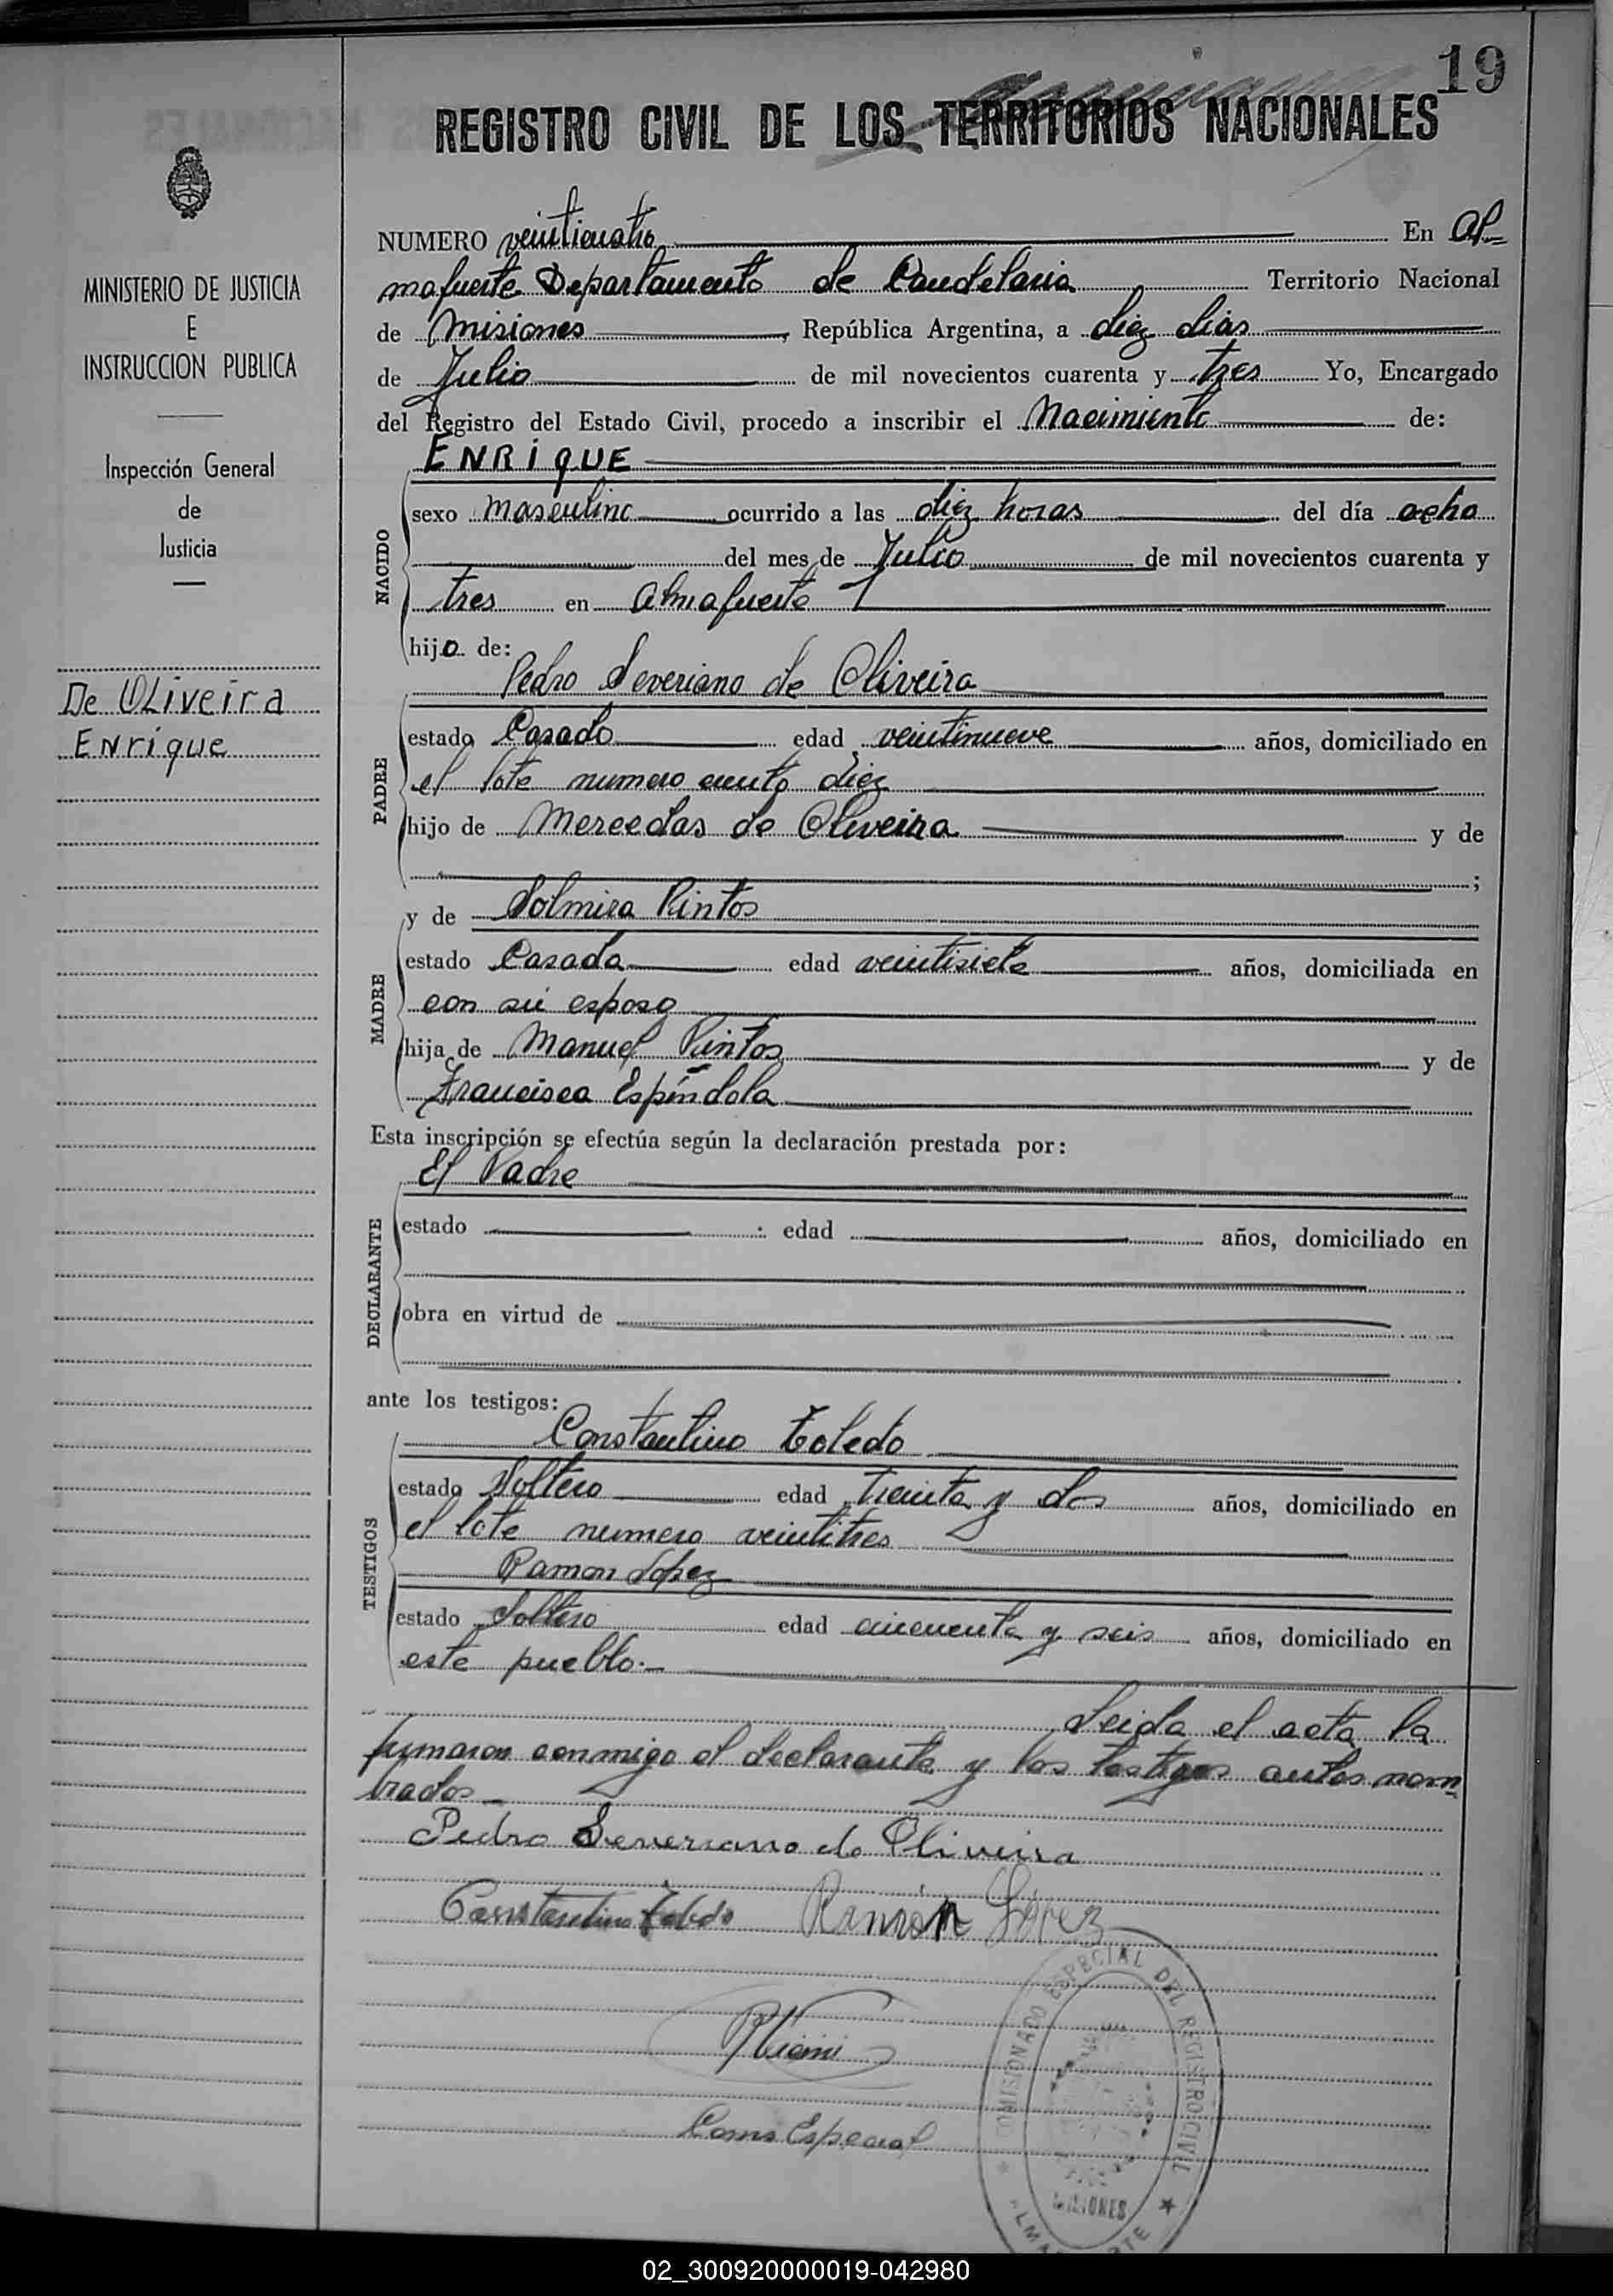 19
REGISTRO CIVIL DE LOS TERRITORIOS NACIONALES
MINISTERIO DE JUSTICIA
E
INSTRUCCION PUBLICA
Inspección General
de
Justicia
De OLiveira
Enrique
NUMERO veinticuatro En Al-
mafuerte Departamento de Candelaria Territorio Nacional
de Misiones, República Argentina, a diez dias
de Julio de mil novecientos cuarenta y tres Yo, Encargado
del Registro del Estado Civil, procedo a inscribir el Nacimiento de:
ENRIQUE
NACIDO
sexo masculino ocurrido a las diez horas del día ocho
del mes de Julio de mil novecientos cuarenta y
tres en Almafuerte
hijo de:
Pedro Severiano de Oliveira
PADRE
estado Casado edad veintinueve años, domiciliado en
el lote numero ciento diez
hijo de Mercedas de Oliveira y de
;
y de Solmira Pintos
MADRE
estado Casada edad veintisiete años, domiciliada en
con su esposo
hija de Manuel Pintos y de
Francisca Espíndola
Esta inscripción se efectúa según la declaración prestada por:
El Padre
DECLARANTE
estado : edad años, domiciliado en
obra en virtud de
ante los testigos:
Constantino Toledo
TESTIGOS
estado Soltero edad treinta y dos años, domiciliado en
el lote numero veintitres
Ramon Lopez
estado Soltero edad cincuenta y seis años, domiciliado en
este pueblo.-
Leida el acta la
firmaron conmigo el declarante y los testigos antes nom
brados-
Pedro Severiano de Oliveira
Constantino Toledo Ramón López
Coms Especial
COMISIONADO ESPECIAL DEL REGISTRO CIVIL
MISIONES
02_300920000019-042980